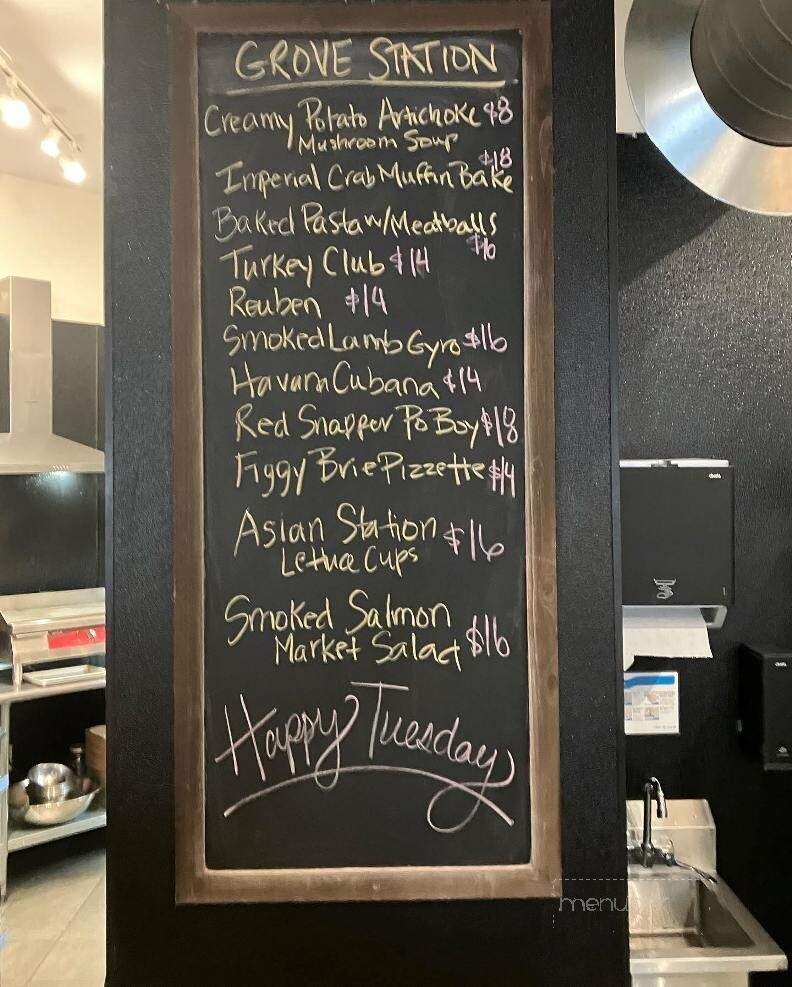 GROVE STATION
Creamy Potato Artichoke $8
Mushroom Soup
$18
Imperial Crab Muffin Bake
Baked Pasta w/Meatballs
$16
Turkey Club $14
Reuben $14
Smoked Lamb Gyro $16
Havana Cubana $14
Red Snapper Po Boy $18
Figgy Brie Pizzette $14
Asian Station $16
Lettuce Cups
Smoked Salmon
Market Salad $16
Happy Tuesday
menu